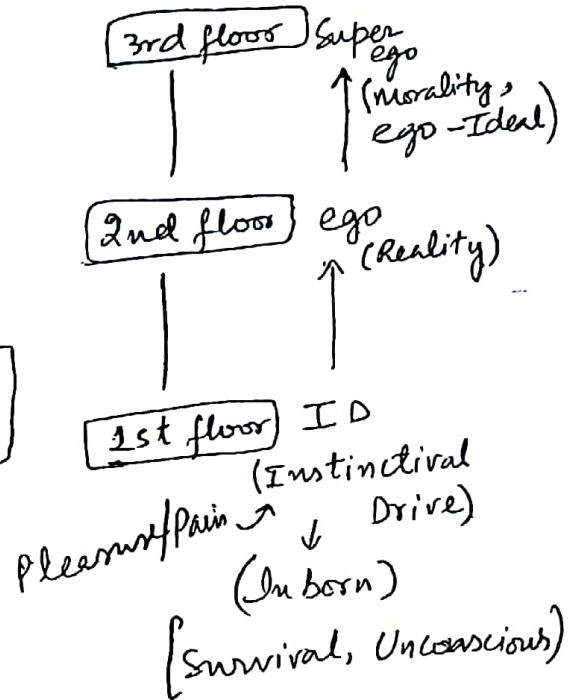 3rd floor Super
ego
(Morality,
ego-Ideal)
2nd floor ego
(Reality)
1st floor ID
(Instinctival
Drive)
Pleasure/Pain
(In born)
[Survival, Unconscious)